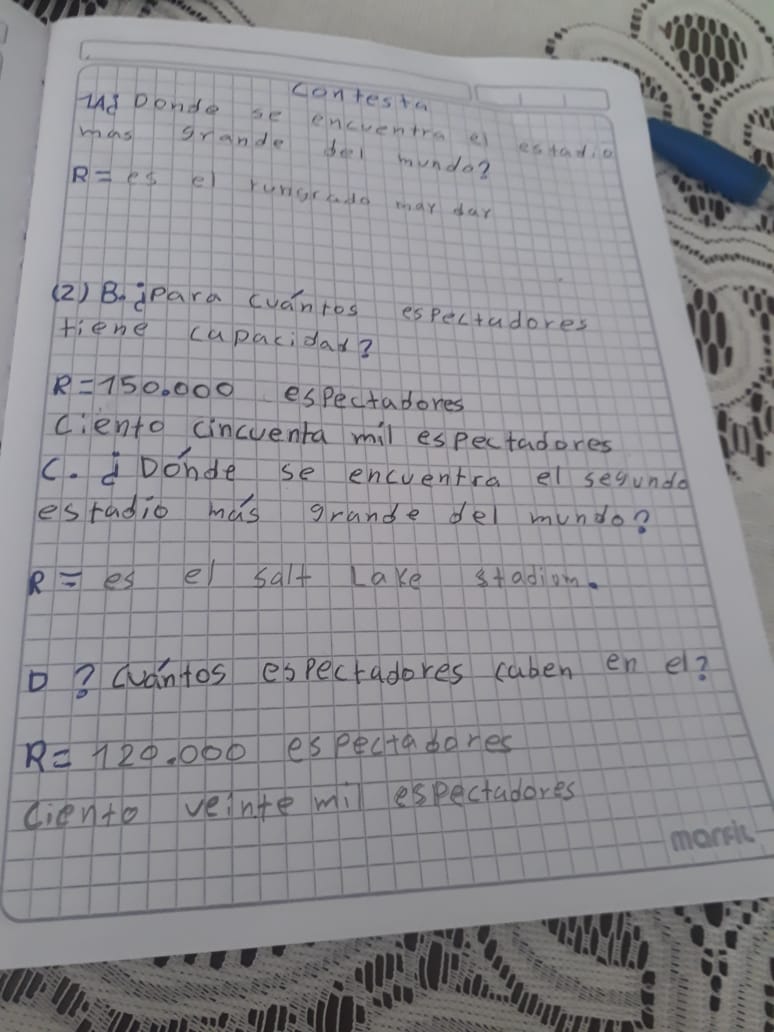 contesta
1A¿ Donde se encuentra el estadio
mas grande del mundo?
R= es el rungrado may day
(2) B. ¿Para cuántos espectadores
tiene capacidad?
R=150.000 espectadores
Ciento cincuenta mil espectadores
C. ¿ Dónde se encuentra el segundo
estadio más grande del mundo?
R= es el salt Lake stadium.
D ? Cuántos espectadores caben en el?
R= 120.000 espectadores
Ciento veinte mil espectadores
marfil